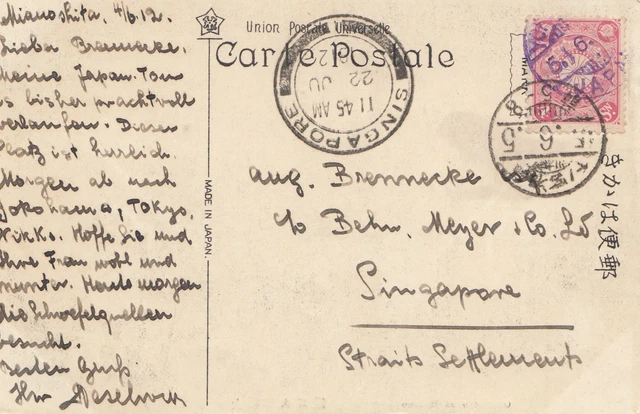 Mianoshita, 4/6.12.
Lieber Brennecke.
Meine Japan. Tour
is bisher prachtvoll
verlaufen. Dieser
Platz ist herlich.
Morgen ab nach
Yokohama, Tokyo,
Nikko. Hoffe Sie und
Ihre Frau wohl und
munter. Heute morgen
die Schwefelquellen
besucht.
Besten Gruß
Ihr
Union Postale Universelle
Carte Postale
MADE IN JAPAN.
SINGAPORE
11 45 AM
22
JU
5.6.
JAPAN
6
5
Aug. Brennecke
c/o Behn, Meyer & Co. Ld
Singapore
Straits Settlements
きかは便郵